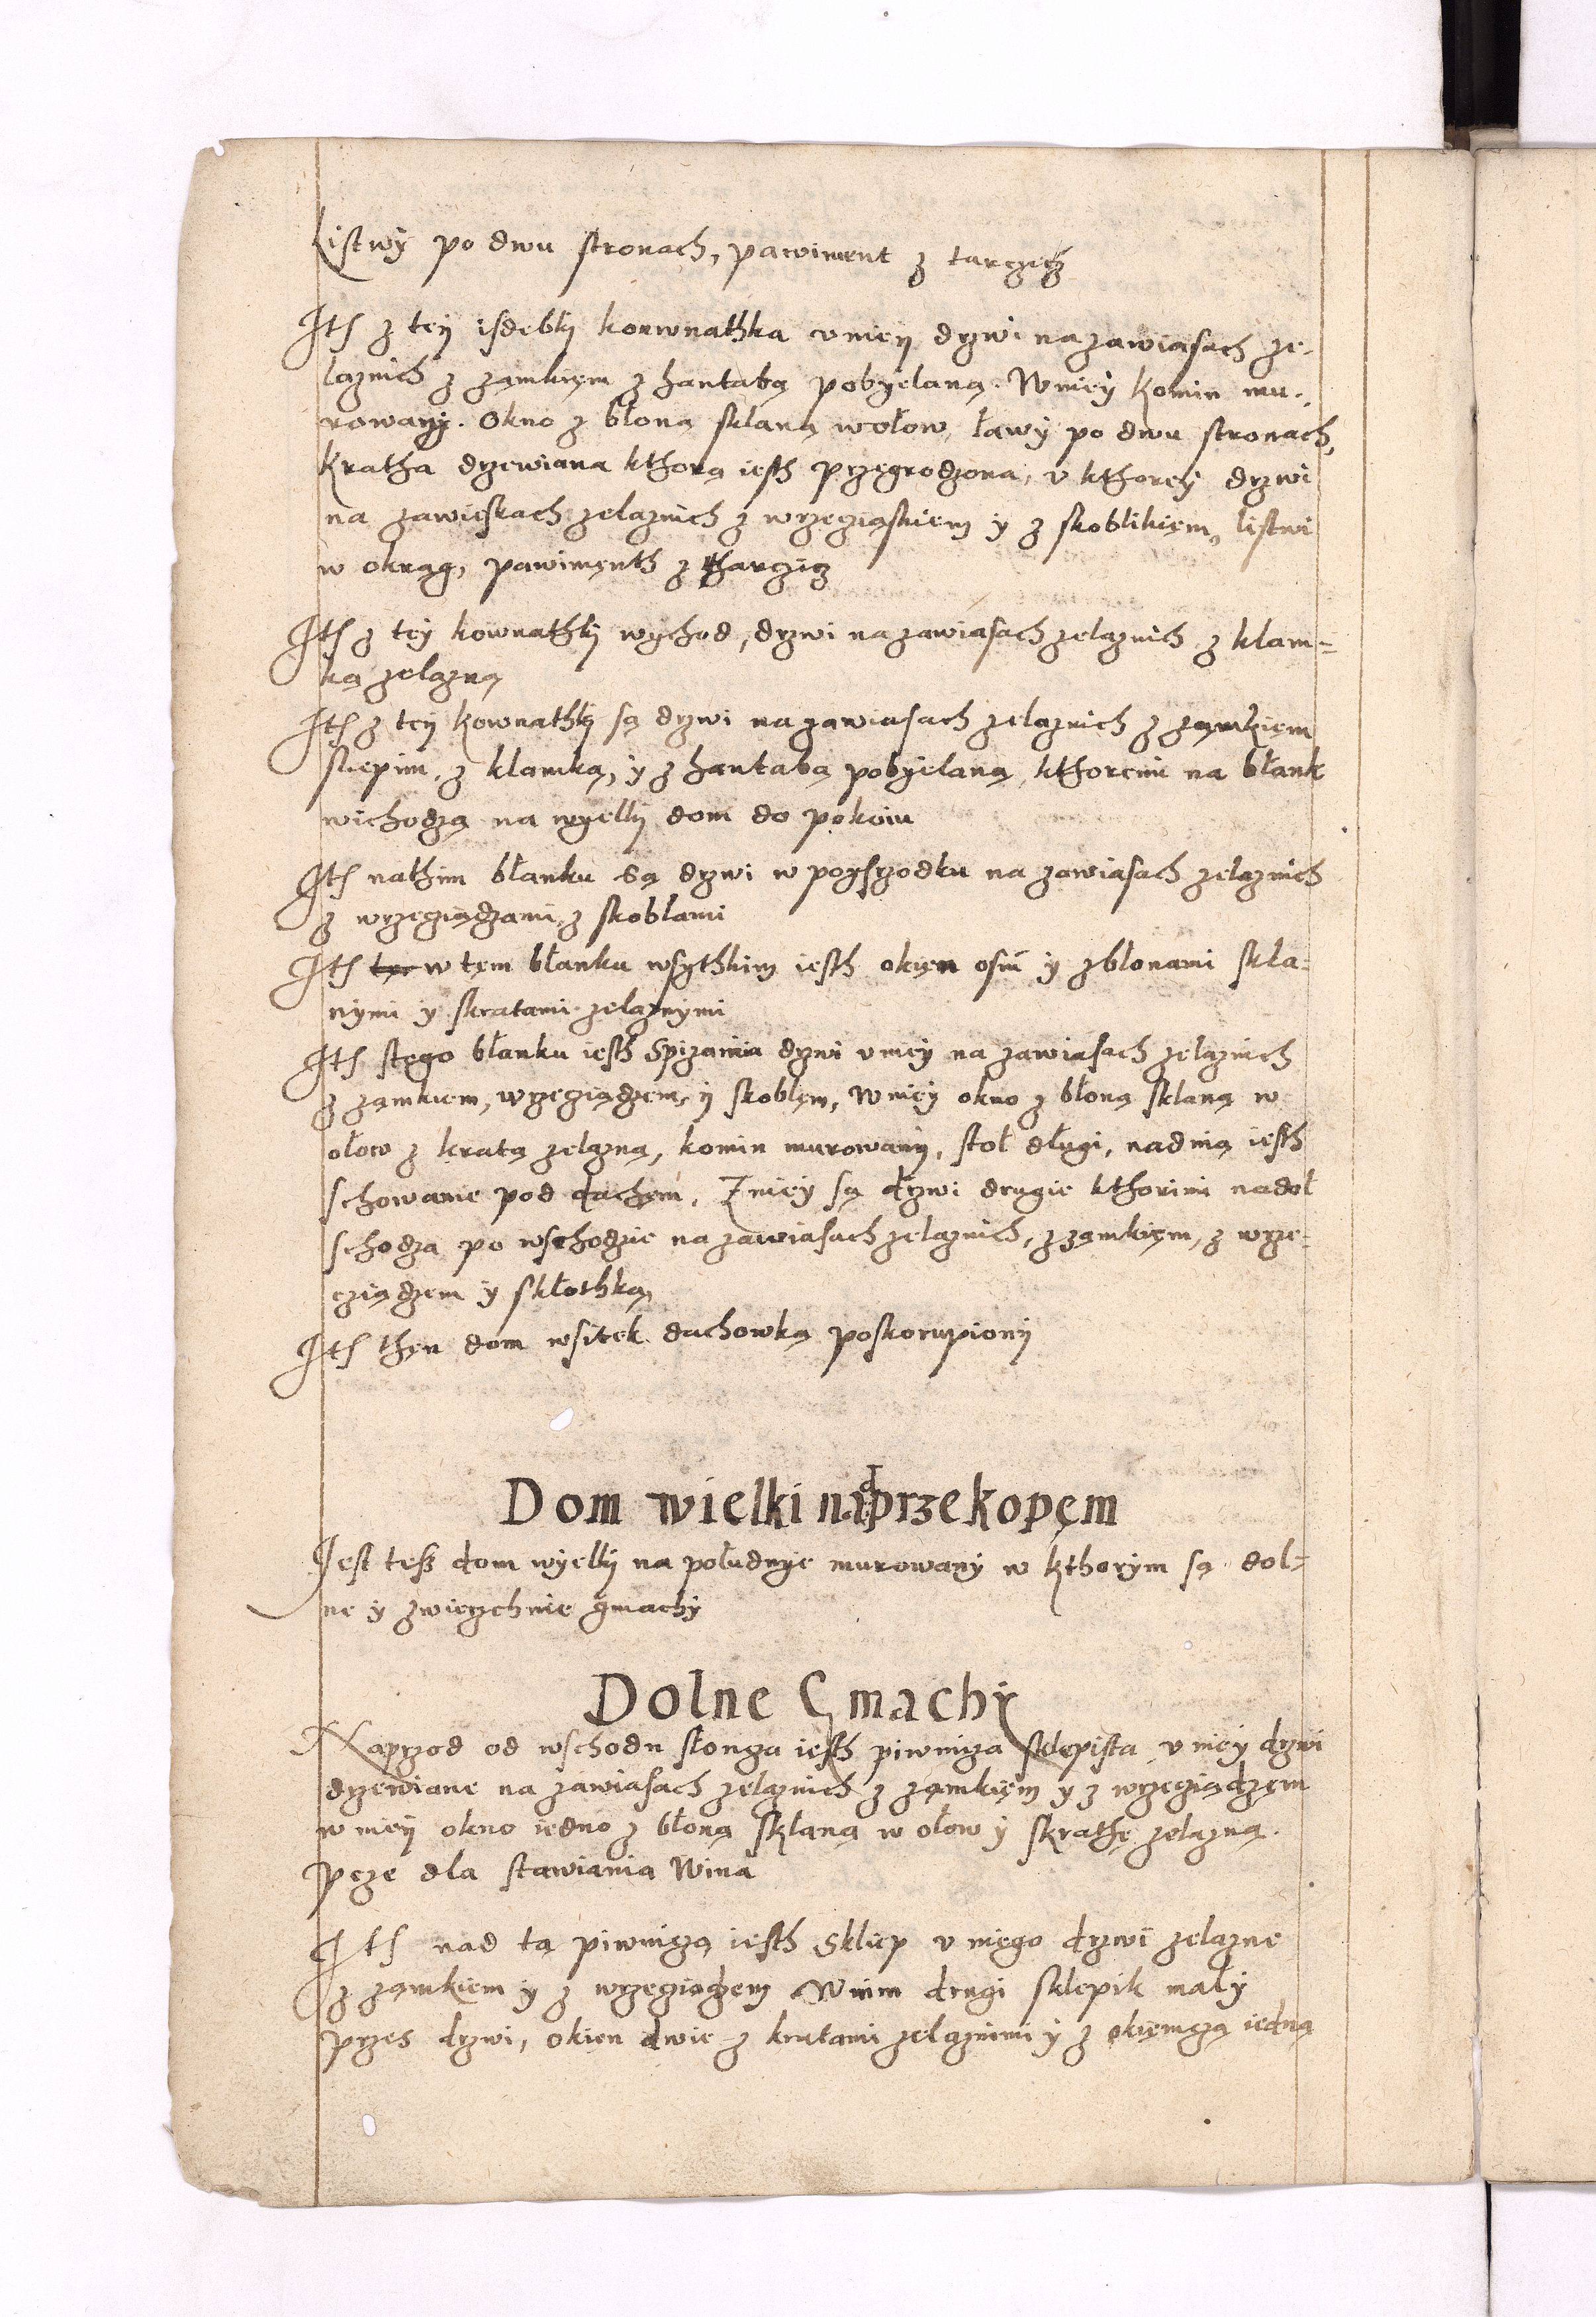 Listwÿ po dwu stronach, pawiment z tarczicz
Itē z teÿ isdebkj komnathka v nieÿ drzwi na zawiasach że-
laznich z zamkięm z hantabą pobÿelaną. W nieÿ komin mu-
rowanÿ. Okno z błoną sklaną wołow, ławÿ po dwu stronach,
Kratha drzewiana kthorą iesth przegrodzona, v kthoreÿ drzwi
na zawieskach zelaznich z wrzecziąskiem ÿ z skoblikięm, listwi
w okrąg, pawimęnth z tharczicz
Itē z teÿ kownathkj wychod, drzwi na zawiasach zelaznich z klam-
ką zelazną
Itē z teÿ kownathkj są drzwi na zawiasach zelaznich z zamkiem
sliepim, z klamką, ÿ z hantabą pobÿelaną, kthoremi na błank
wichodzą na wÿelkj dom do pokoiu
Itē nathim błanku są drzwi w poysrzodku na zawiasach zelaznich
z wrzecziądzami z skoblami
Itē w tęm błanku wsythkim iesth okięn osm ÿ z blonami skla-
nÿmi ÿ skratami zelaznymi
Itē stego błanku iesth Spizarnia drzwi v nieÿ na zawiasach zelaznich
z zamkiem, wrzecziądzem, ÿ skoblęm, W nieÿ okno z błoną sklaną w
ołow z kratą zelazną, komin murowanÿ, stoł długi, nad nią iesth
schowanie pod dachęm, Z nieÿ są drzwi drugie kthorimi nadoł
schodzą po wschodzie na zawiasach zelaznich, z zamkięm, z wrze-
cziądzem ÿ skłothką
Itē thęn dom wsitek dachowką poskorupionÿ
Dom wielki nad przekopęm
Jest tesz dom wÿelkj na południe murowanÿ w kthorÿm są dol-
ne ÿ zwierzchnie gmachÿ
Dolne Gmachÿ
Naprzod od wschodu słoncza iesth piwnicza sklepista v nieÿ drzwi
drzewiane na zawiasach zelaznich z zamkięm ÿ z wrzecziądzęm
w nieÿ okno iedno z błoną sklaną w ołow ÿ skrathę zelazną.
dla stawiania Wina
Itē nad tą piwniczą iesth Skliep v niego drzwi zelazne
z zamkiem ÿ z wrzecziądzem W nim drugi sklepik małÿ
przes drzwi, okien dwie z kratami zelaznimi ÿ z okięniczą iedną